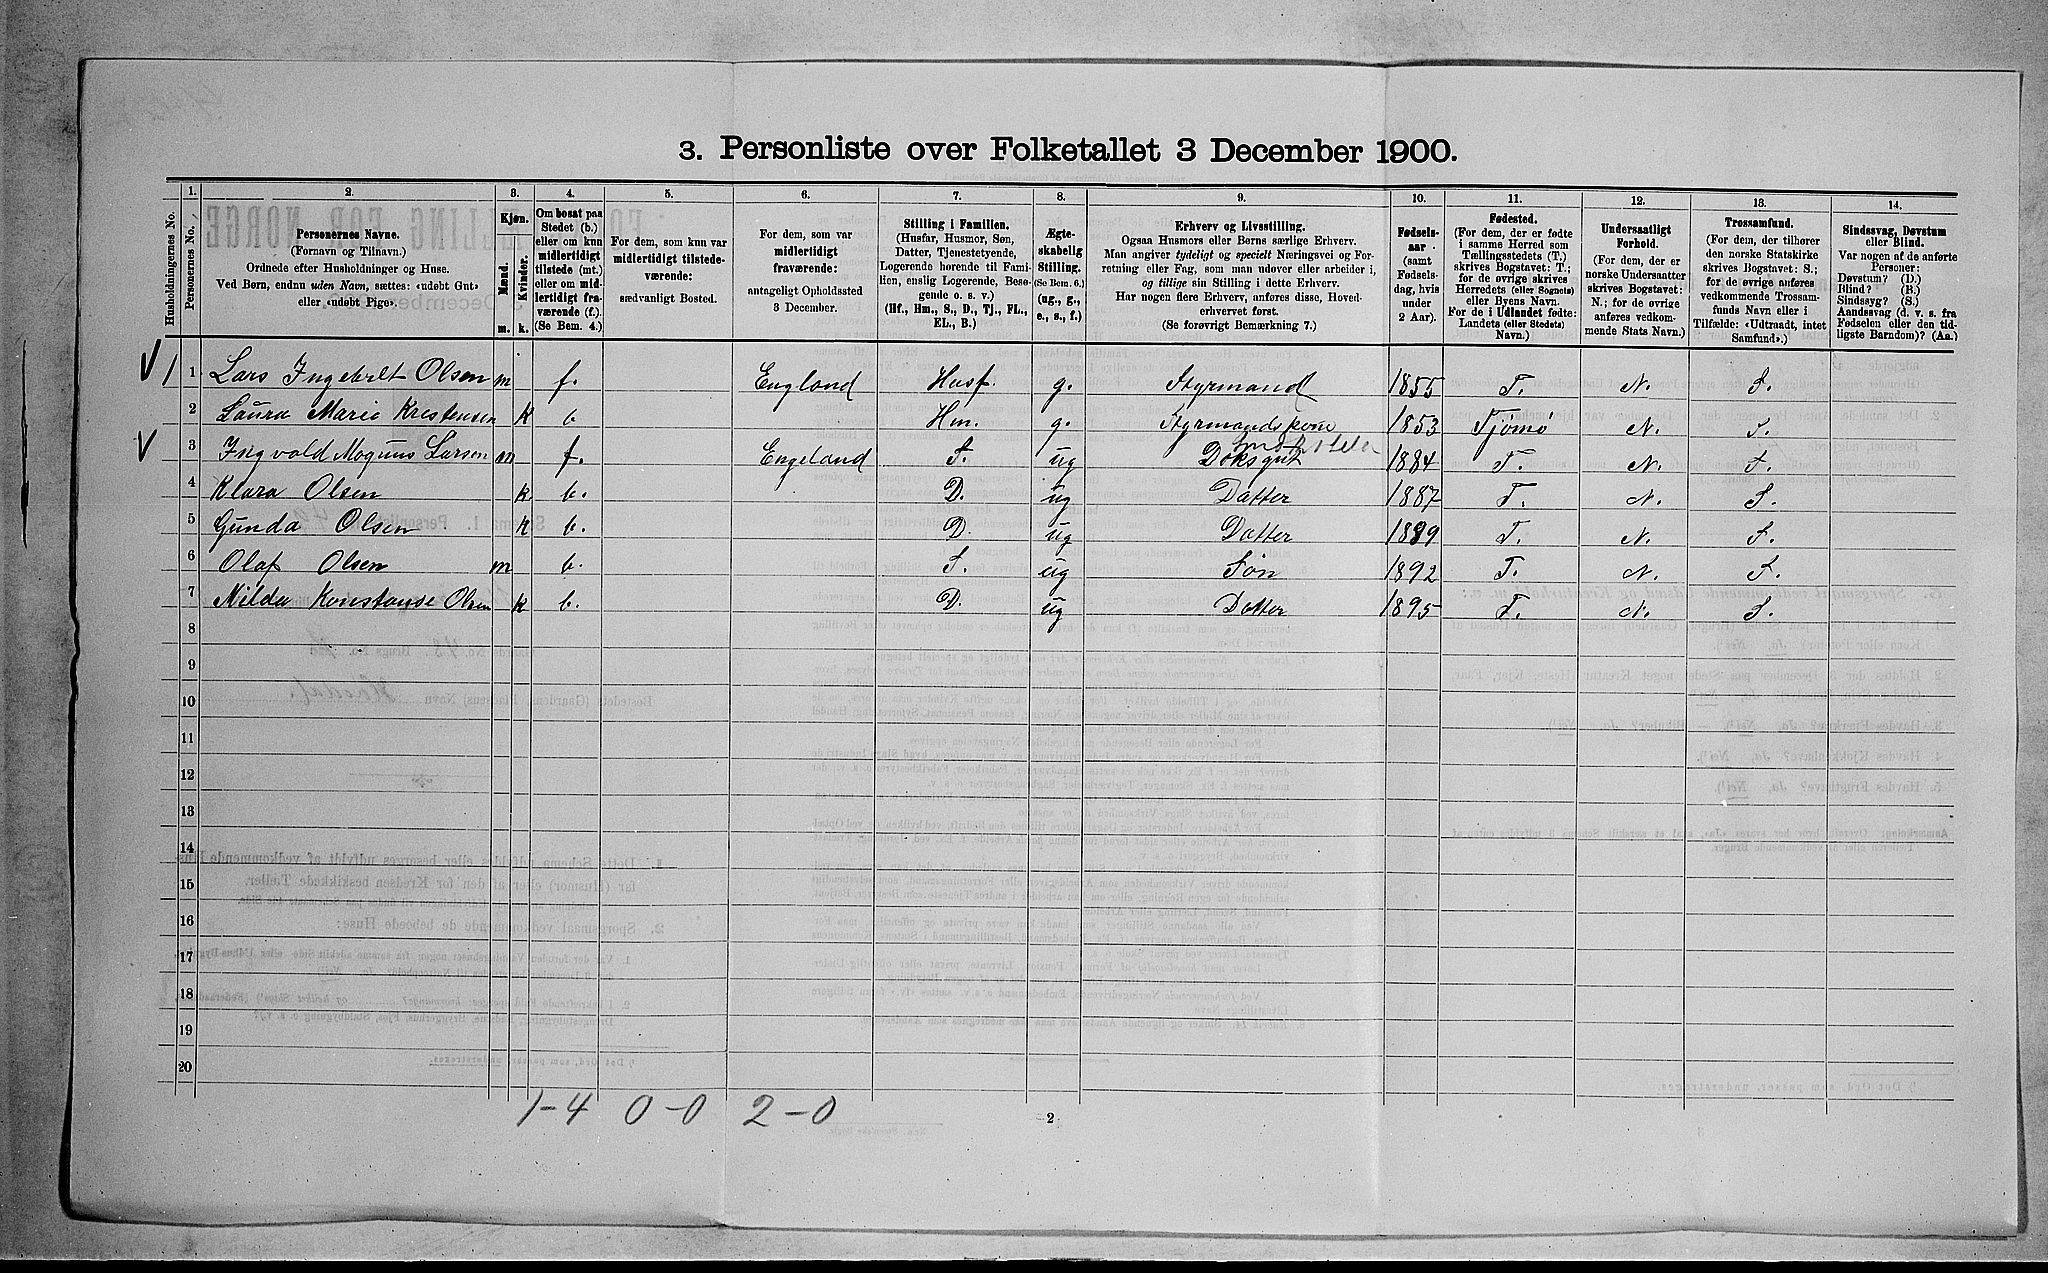 3. Personliste over Folketallet 3 December 1900.
1. 2. 3. 4. 5. 6. 7. 8. 9. 10. 11. 12. 13. 14.
Husholdningernes No.
Personernes No.
Personernes Navne.
(Fornavn og Tilnavn).
Ordnede efter Husholdninger og Huse.
Ved Børn, endnu uden Navn, sættes: «udøbt Gut»
eller «udøbt Pige».
Kjøn.
Mænd.
Kvinder.
m. k.
Om bosat paa
Stedet (b.)
eller om kun
midlertidigt
tilstede (mt.)
eller om mid-
lertidigt fra-
værende (f.).
(Se Bem. 4.)
For dem, som kun var
midlertidigt tilstede-
værende:
sædvanligt Bosted.
For dem, som var
midlertidigt
fraværende:
antageligt Opholdssted
3 December.
Stilling i Familien.
(Husfar, Husmor, Søn,
Datter, Tjenestetyende,
Logerende hørende til Fami-
lien, enslig Logerende, Besø-
gende o. s. v.)
(Hf., Hm., S., D., Tj., FL.,
EL., B.)
Ægte-
skabelig
Stilling.
(Se Bem. 6.)
(ug., g.,
e., s., f.)
Erhverv og Livsstilling.
Ogsaa Husmors eller Børns særlige Erhverv.
Man angiver tydeligt og specielt Næringsvei og For-
retning eller Fag, som man udøver eller arbeider i,
og tillige sin Stilling i dette Erhverv.
Har nogen flere Erhverv, anføres disse, Hoved-
erhvervet først.
(Se forøvrigt Bemærkning 7.)
Fødsels-
aar
(samt
Fødsels-
dag, hvis
under
2 Aar).
Fødested.
(For dem, der er fødte
i samme Herred som
Tællingsstedets (T.)
skrives Bogstavet: T.;
for de øvrige skrives
Herredets (eller Sognets)
eller Byens Navn.
For de i Udlandet fødte:
Landets (eller Stedets)
Navn.)
Undersaatligt
Forhold.
(For dem, der er
norske Undersaatter
skrives Bogstavet:
N.; for de øvrige
anføres vedkom-
mende Stats Navn.)
Trossamfund.
(For dem, der tilhører
den norske Statskirke
skrives Bogstavet: S.;
for de øvrige anføres
vedkommende Trossam-
funds Navn eller i
Tilfælde: «Udtraadt, intet
Samfund».)
Sindssvag, Døvstum
eller Blind.
Var nogen af de anførte
Personer:
Døvstum? (D.)
Blind? (B.)
Sindssyg? (S.)
Aandssvag (d. v. s. fra
Fødselen eller den tid-
ligste Barndom)? (Aa.)
1 1 Lars Ingebrelt Olsen m f. England Husf. g. Styrmand 1855 T. N. S.
2 Laura Marie Kristensen k b Hm. g. Styrmandskone 1853 Tjømø N. S.
3 Ingvald Magnus Larsen m f. Engeland S. ug Doksgut 1884 T. N. S.
4 Klara Olsen k b. D. ug Datter 1887 T. N. S.
5 Gunda Olsen k b. D. ug Datter 1889 T. N. S.
6 Olaf Olsen m b. S. ug Søn 1892 T. N. S.
7 Milda Konstanse Olsen k b. D. ug Datter 1895 T. N. S.
8
9
10
11
12
13
14
15
16
17
18
19
20
1-4 0-0 2-0
2